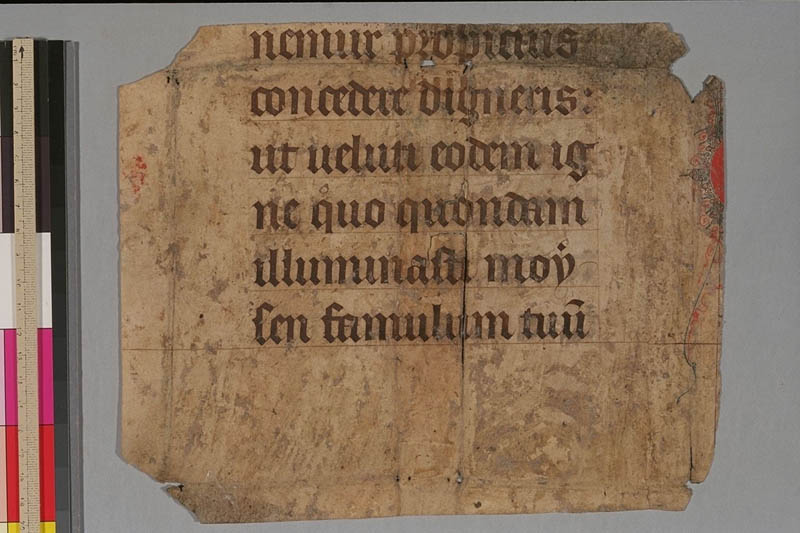 nemur propicius
concedere digneris:
ut ueluti eodem ig
ne quo quondam
illuminasti moÿ
sen famulum tuū